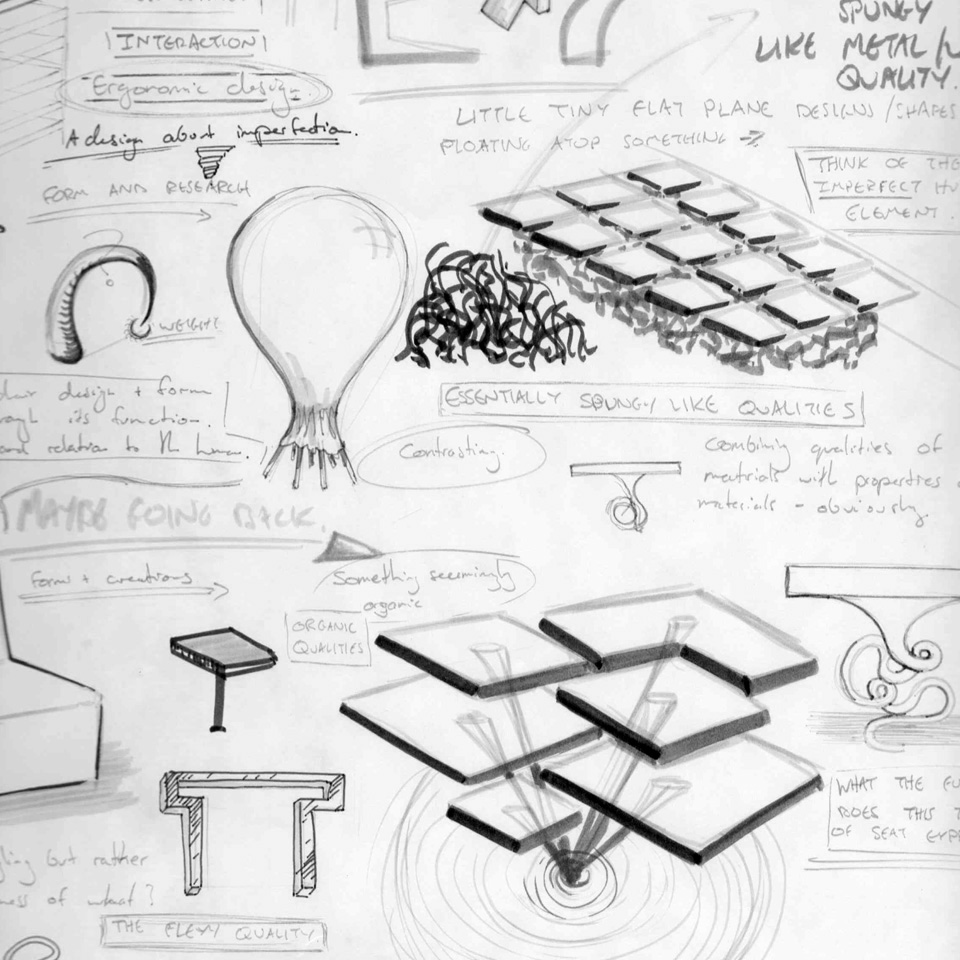 INTERACTION
Ergonomic design.
A design about imperfection.
FORM AND RESEARCH
SPUNGY
LIKE METAL/
QUALITY.
LITTLE TINY FLAT PLANE DESIGNS/SHAPES
FLOATING ATOP SOMETHING
THINK OF THE
IMPERFECT HU
ELEMENT.
WEIGHT
design + form
its function.
relation to th human.
ESSENTIALLY SPUNGY LIKE QUALITIES
Contrasting.
Combining qualities of
matirials with properties
materials - obviously.
MAYBE GOING BACK.
Form + creations
Something seemingly
organic
ORGANIC
QUALITIES
WHAT THE FU
DOES THIS T
OF SEAT EXP
but rather
ness of what?
THE FLEXY QUALITY.